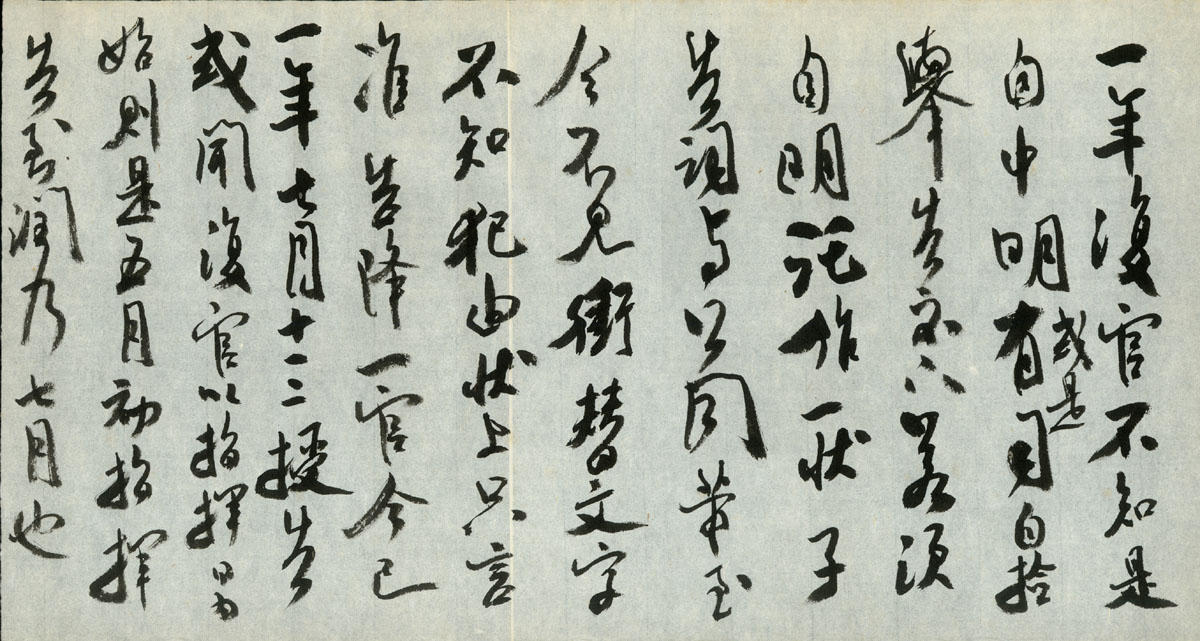 一年復官不知是
自中明或是有司自檢
舉告示不若須
自明託作一狀子
告詞与公同帶至
今不見衝替文字
不知犯由狀上只言
准告降一官今已
一年七月十二授告
或聞復官以指揮日為
始則是五月初指揮
告到潤乃七月也